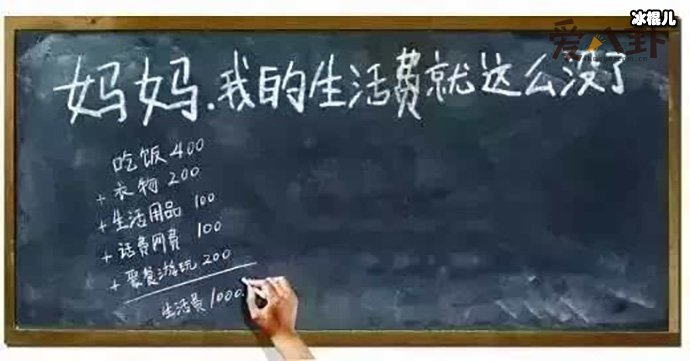 冰棍儿
爱八卦
妈妈.我的生活费就这么没了
吃饭 400
+ 衣物 200
+ 生活用品 100
+ 话费网费 100
+ 聚餐游玩 200
生活费 1000